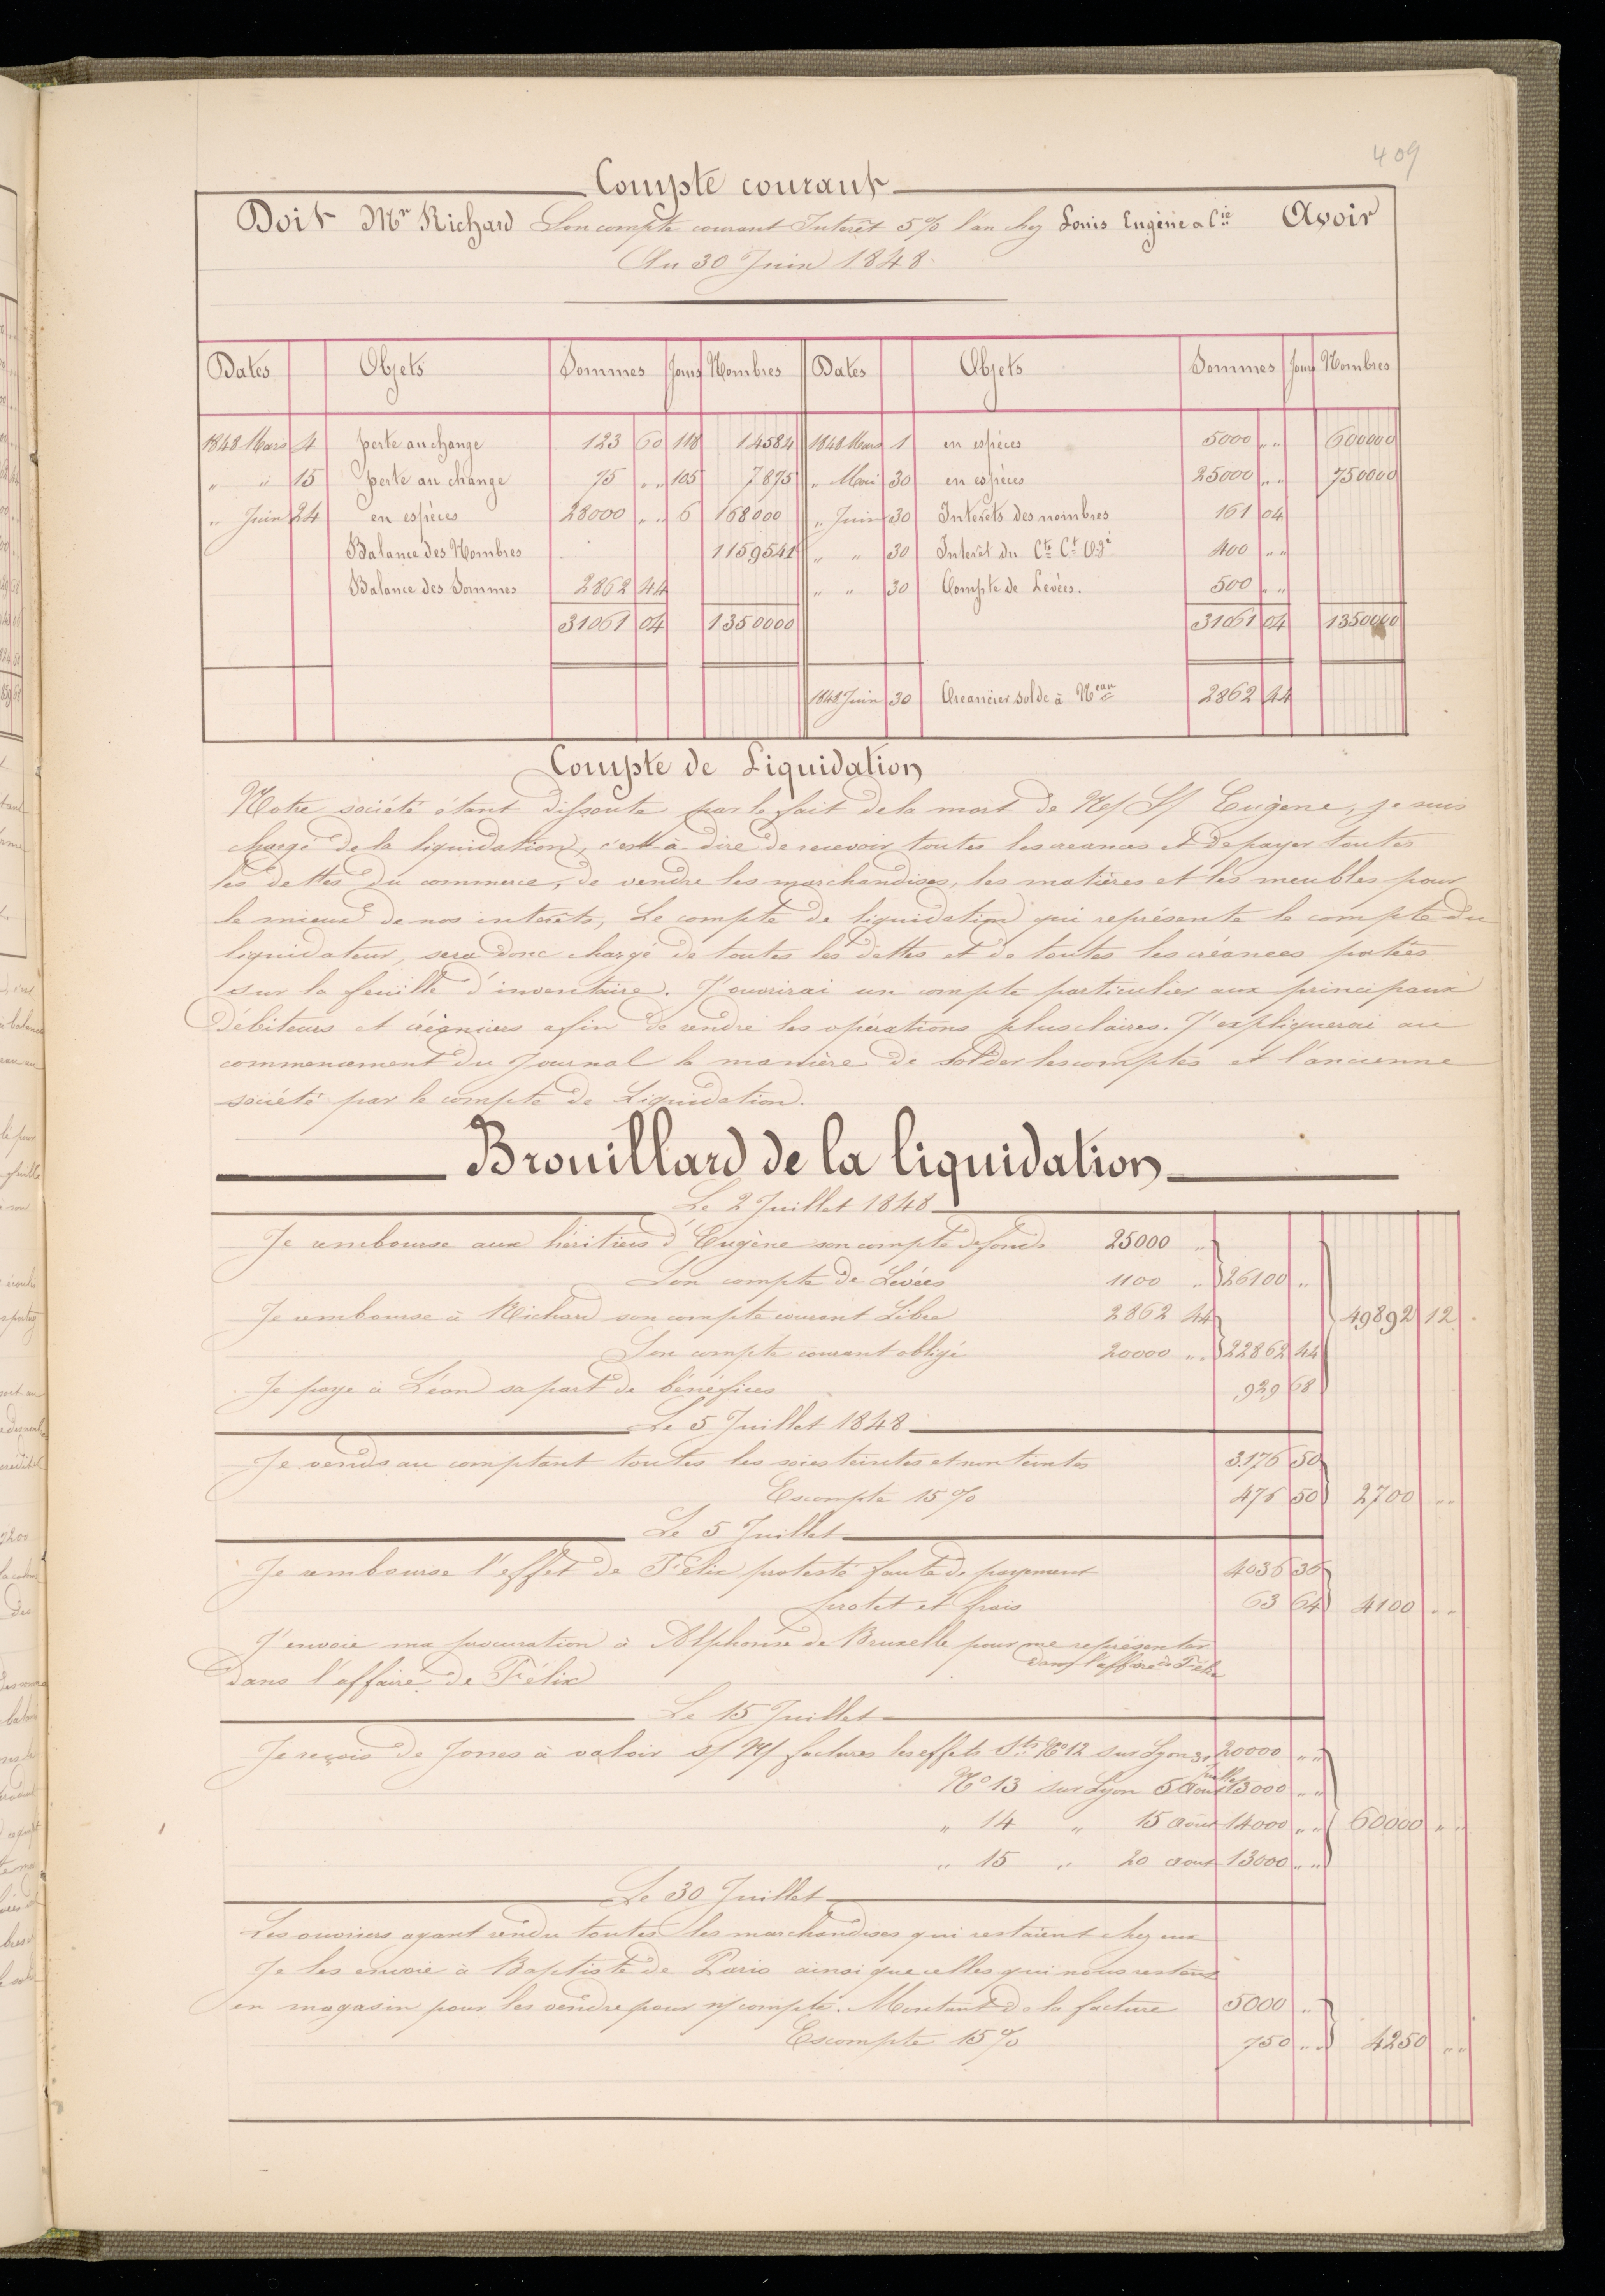 409
Compte courant
Doit Mr Richard Son compte courant Interêt 5% l'an chez Louis Eugène & Cie Avoir
Au 30 Juin 1848
Dates Objets Sommes Jours Nombres Dates Objets Sommes Jours Nombres
1848 Mars 4 perte au change 123 60 118 14584 1848 Mars 1 en espèces 5000 " " 600000
" " 15 perte au change 75 " " 105 7875 " Mai 30 en espèces 25000 " " 750000
" Juin 24 en espèces 28000 " " 6 168000 " Juin 30 Interêts des nombres 161 04
Balance des Nombres 1159541 " " 30 Interêt du Cte Ct Ogé 400 " "
Balance des Sommes 2862 44 " " 30 Compte de Levées. 500 " "
31061 04 1350000 31061 04 1350000
1848 Juin 30 Creancier solde à Neau 2862 44
Compte de Liquidation
Notre société étant dissoute par le fait de la mort de N/ S/ Eugène, je suis
chargé de la liquidation, c'est à dire de recevoir toutes les créances et de payer toutes
les dettes du commerce, de vendre les marchandises, les matières et les meubles pour
le mieux de nos interêts, Le compte de liquidation qui représente le compte du
liquidateur, sera donc chargé de toutes les dettes et de toutes les créances portées
sur la feuille d'inventaire. J'ouvrirai un compte particulier aux principaux
débiteurs et créanciers afin de rendre les opérations plus claires. J'expliquerai au
commencement du Journal la manière de solder les comptes et l'ancienne
société par le compte de Liquidation.
Brouillard de la liquidation
Le 2 Juillet 1848
Je rembourse aux héritiers d'Eugène son compte de fonds 25000 "
Son compte de Levées 1100 " 26100 "
Je rembourse à Richard son compte courant Libre 2862 44 49892 12
Son compte courant obligé 20000 " " 22862 44
Je paye à Léon sa part de bénéfices 929 68
Le 5 Juillet 1848
Je vends au comptant toutes les soies teintes et non teintes 3176 50
Escompte 15% 476 50 2700 " "
Le 5 Juillet
Je rembourse l'effet de Félix protesté faute de payement 4036 36
protet et frais 63 64 4100 " "
J'envoie ma procuration à Alphonse de Bruxelle pour me représenter
dans l'affaire de Félix
dans l'affaire de Félix
Le 15 Juillet
Je reçois de Jones à valoir s/ N/ factures les effets Sts No 12 sur Lyon 31 20000 " "
juillet
No 13 sur Lyon 5 Aout 13000 " "
" 14 " 15 août 14000 " " 60000 " "
" 15 " 20 aout 13000 " "
Le 30 Juillet
Les ouvriers ayant rendu toutes les marchandises qui restaient chez eux
Je les envoie à Baptiste de Paris ainsi que celles qui nous restent
en magasin pour les vendre pour n/ compte. Montant de la facture 5000 "
Escompte 15% 750 " " 4250 " "